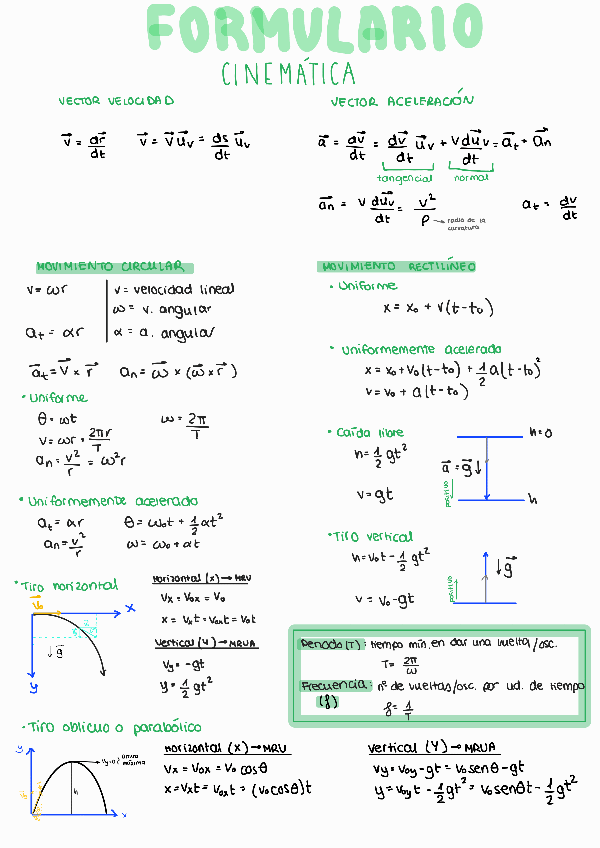 FORMULARIO
CINEMÁTICA
VECTOR VELOCIDAD
v⃗ = dr⃗/dt   v⃗ = v⃗ u⃗v = ds/dt u⃗v
VECTOR ACELERACIÓN
a⃗ = dv⃗/dt = dv⃗/dt u⃗v + v du⃗v/dt = a⃗t + a⃗n
tangencial   normal
a⃗n = v du⃗v/dt = v²/ρ → radio de la curvatura   at = dv/dt
MOVIMIENTO CIRCULAR
v = ωr   v = velocidad lineal
ω = v. angular
at = αr   α = a. angular
a⃗t = v⃗ × r⃗   a⃗n = ω⃗ × (ω⃗ × r⃗)
• Uniforme
θ = ωt   ω = 2π/T
v = ωr = 2πr/T
an = v²/r = ω²r
• Uniformemente acelerado
at = αr   θ = ω₀t + 1/2 αt²
an = v²/r   ω = ω₀ + αt
MOVIMIENTO RECTILÍNEO
• Uniforme
x = x₀ + v(t-t₀)
• Uniformemente acelerado
x = x₀ + v₀(t-t₀) + 1/2 a(t-t₀)²
v = v₀ + a(t-t₀)
• Caída libre
h = 1/2 gt²
v = gt
h=0
a⃗ = g⃗
positivo
h
• Tiro vertical
h = v₀t - 1/2 gt²
v = v₀ - gt
g⃗
positivo
• Tiro horizontal
v⃗₀
x
g⃗
y
Horizontal (x) → MRU
Vx = V₀x = V₀
x = Vxt = V₀xt = V₀t
Vertical (Y) → MRUA
Vy = -gt
y = 1/2 gt²
Periodo (T): tiempo mín. en dar una vuelta/osc.
T = 2π/ω
Frecuencia: nº de vueltas/osc. por ud. de tiempo
(f)
f = 1/T
• Tiro oblicuo o parabólico
y
Vy=0
altura máxima
h
x
Horizontal (x) → MRU
Vx = V₀x = V₀ cosθ
x = Vxt = V₀xt = (V₀cosθ)t
Vertical (Y) → MRUA
Vy = V₀y - gt = V₀senθ - gt
y = V₀yt - 1/2 gt² = V₀senθt - 1/2 gt²